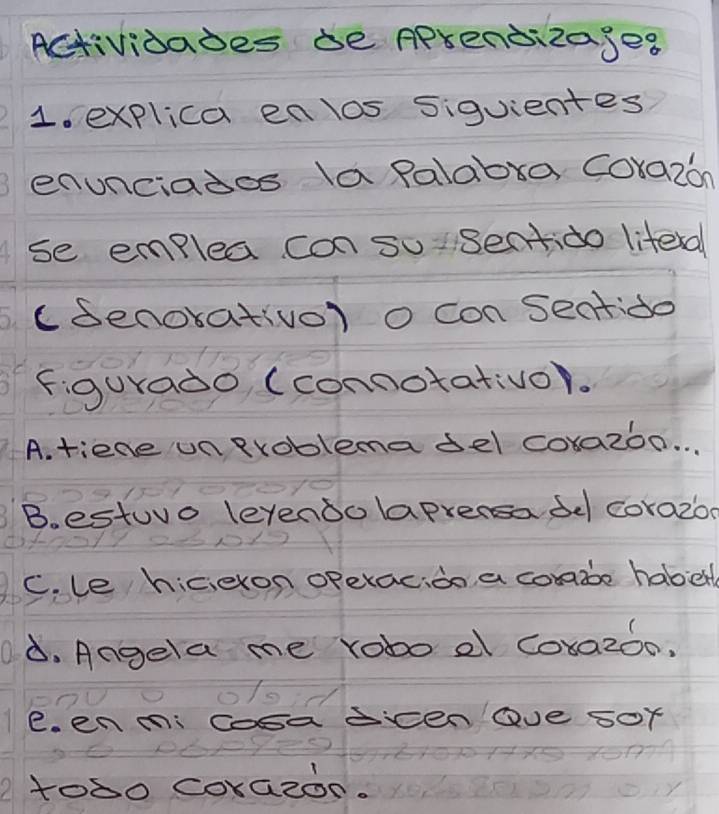 Actividades de Aprendizaje:
1. explica en los siguientes
enunciados la Palabra Corazón
se emplea con su sentido literal
(denorativo) o con sentido
figurado (connotativo).
A. tiene un problema del corazón...
B. estuvo leyendo la prensa del corazón
C. le hicieron operación a corazón habiert
d. Angela me robo el Corazón.
e. en mi casa dicen que soy
todo corazón.